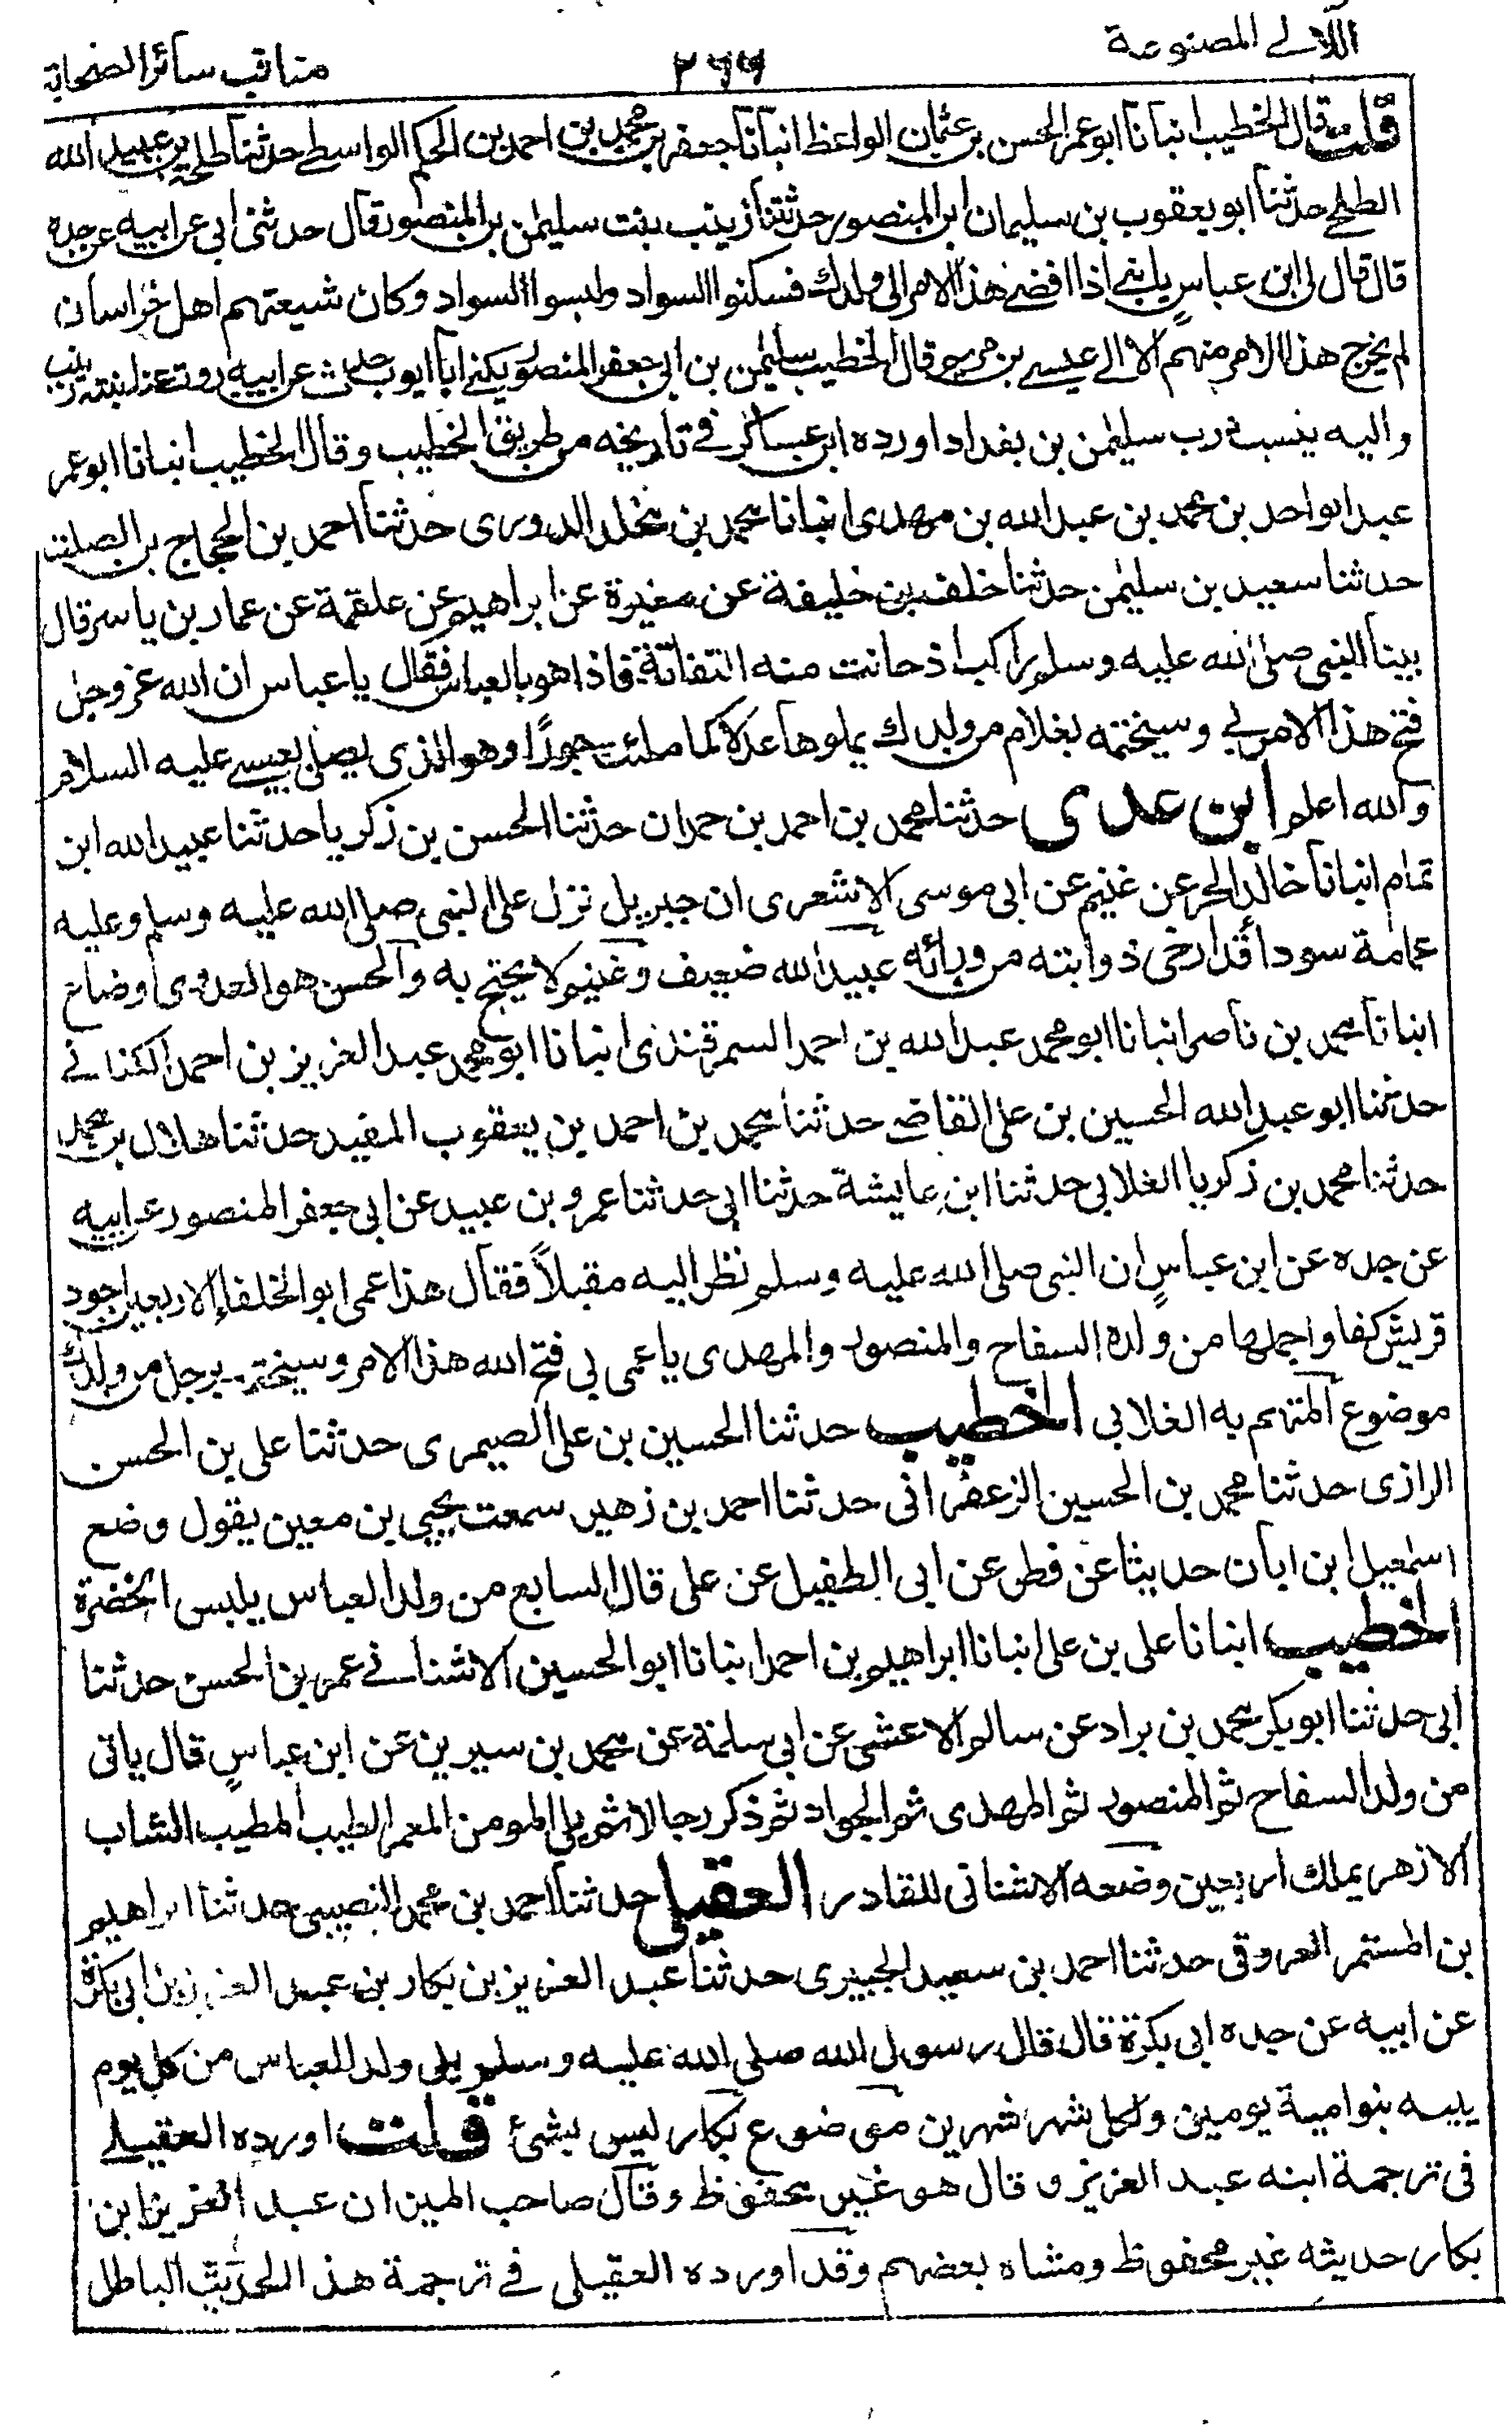 اللآلے المصنوعة
٢٦٦
مناقب سائر الصحابة
قلت قال الخطيب انبانا ابو عمر الحسن بن عثمان الواعظ انبانا جعفر بن محمد بن احمد بن الحكم الواسطے حدثنا طلحة بن عبيد الله
الطلحے حدثنا ابو يعقوب بن سليمان ابن المنصور حدثتنا زينب بنت سليمٰن بن المنصور قال حدثنى ابى عن ابيه عن جده
قال قال لى ابن عباس يا بنے اذا افضے هذا الامر الى ولدك فسكنوا السواد ولبسوا السواد وكان شيعتهم اهل خراسان
لم يخرج هذا الامر منهم الا الے عيسے بن مريم قال الخطيب سليمٰن بن ابى جعفر المنصور يكنے ابا ايوب حدث عن ابيه روت عنه ابنته زينب
واليه ينسب درب سليمٰن بن بغداد اورده ابن عساكر فے تاريخه من طريق الخطيب وقال الخطيب انبانا ابو عمر
عبد الواحد بن محمد بن عبد الله بن مهدى انبانا محمد بن مخلد الدورى حدثنا احمد بن الحجاج بن الصلت
حدثنا سعيد بن سليمٰن حدثنا خلف بن خليفة عن مغيرة عن ابراهيم عن علقمة عن عمار بن ياسر قال
بينا النبى صلى الله عليه وسلم راكب اذ حانت منه التفاتة فاذا هو بالعباس فقال يا عباس ان الله عز وجل
فتح هذا الامر بے وسيختمه بغلام من ولدك يملوها عدلا كما ملئت جورًا وهو الذى يصلى بعيسے عليه السلام
والله اعلم ابن عدى حدثنا محمد بن احمد بن حمدان حدثنا الحسن بن زكريا حدثنا عبيد الله ابن
تمام انبانا خالد الحر عن غنيم عن ابى موسى الاشعرى ان جبريل نزل على النبى صلى الله عليه وسلم وعليه
عمامة سودا قد ارخى ذوابته من ورائه عبيد الله ضعيف وغنيم لا يحتج به والحسن هو العدوى وضاع
انبانا محمد بن ناصر انبانا ابو محمد عبد الله بن احمد السمرقندى انبانا ابو محمد عبد العزيز بن احمد الكنانے
حدثنا ابو عبد الله الحسين بن على القاضے حدثنا محمد بن احمد بن يعقوب المفيد حدثنا هلال بن محمد
حدثنا محمد بن زكريا الغلابى حدثنا ابن عايشة حدثنا ابى حدثنا عمرو بن عبيد عن ابى جعفر المنصور عن ابيه
عن جده عن ابن عباس ان النبى صلى الله عليه وسلم نظر اليه مقبلاً فقال هذا عمى ابو الخلفاء الاربعين اجود
قريش كفا واجملها من ولده السفاح والمنصور والمهدى يا عمى بى فتح الله هذا الامر وسيختمه برجل من ولدك
موضوع المتهم به الغلابى الخطيب حدثنا الحسين بن على الصيمرى حدثنا على بن الحسن
الرازى حدثنا محمد بن الحسين الزعفرانى حدثنا احمد بن زهير سمعت يحيى بن معين يقول وضع
اسمٰعيل ابن ابان حديثا عن فطر عن ابى الطفيل عن على قال السابع من ولد العباس يلبس الخضرة
الخطيب انبانا على بن على انبانا ابراهيم بن احمد انبانا ابو الحسين الاشنانے عمر بن الحسن حدثنا
ابى حدثنا ابو بكر محمد بن براد عن سالم الاعشى عن ابى سلمة عن محمد بن سيرين عن ابن عباس قال ياتى
من ولد السفاح ثم المنصور ثم المهدى ثم الجواد ثم ذكر رجالا ثم يلى المومن المعمر الطيب المطيب الشاب
الازهر يملك اربعين وضعه الاشنانى للقادر العقيلى حدثنا احمد بن محمد النصيبى حدثنا ابراهيم
بن المستمر العروقى حدثنا احمد بن سعيد الجبيرى حدثنا عبد العزيز بن بكار بن عبد العزيز بن ابى بكرة
عن ابيه عن جده ابى بكرة قال قال رسول الله صلى الله عليه وسلم يلى ولد العباس من كل يوم
يليه بنو امية يومين ولكل شهر شهرين موضوع بكار ليس بشئ قلت اورده العقيلے
فى ترجمة ابنه عبد العزيز و قال هو غير محفوظ وقال صاحب الميزان عبد العزيز ابن
بكار حديثه غير محفوظ ومشاه بعضهم وقد اورده العقيلى فے ترجمة هذا الحديث الباطل